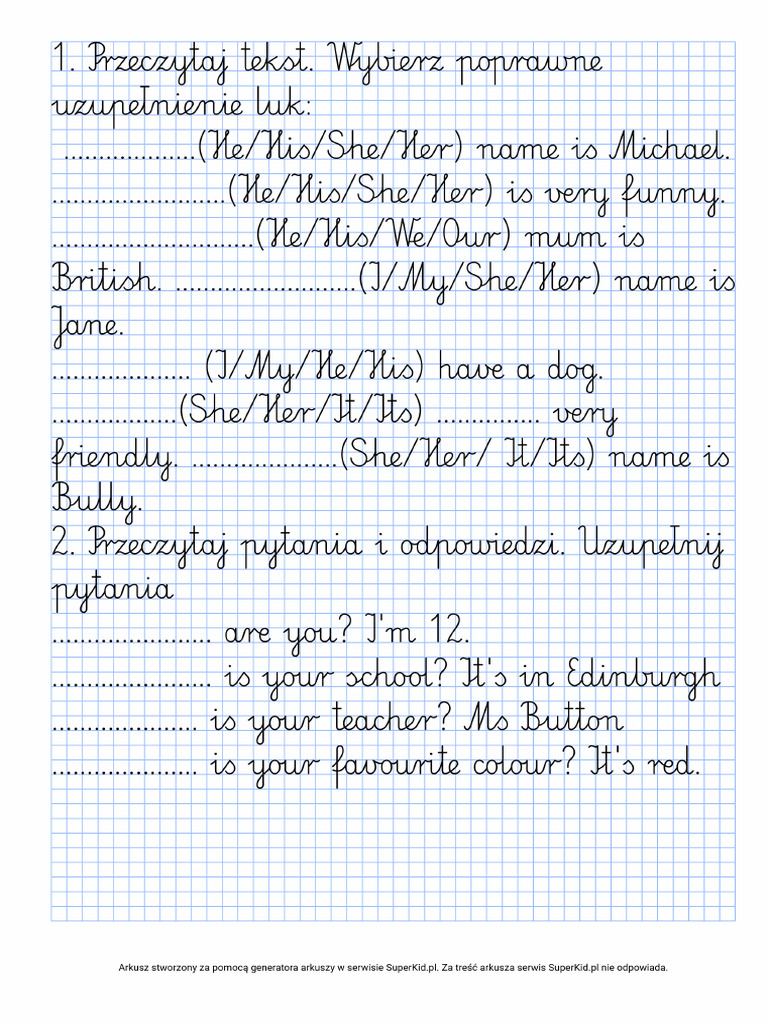 1. Przeczytaj tekst. Wybierz poprawne
uzupełnienie luk:
...................(He/His/She/Her) name is Michael.
.........................(He/His/She/Her) is very funny.
.............................(He/His/We/Our) mum is
British. ..........................(I/My/She/Her) name is
Jane.
.................... (I/My/He/His) have a dog.
..................(She/Her/It/Its) ............... very
friendly. .....................(She/Her/ It/Its) name is
Bully.
2. Przeczytaj pytania i odpowiedzi. Uzupełnij
pytania
....................... are you? I'm 12.
....................... is your school? It's in Edinburgh
..................... is your teacher? Ms Button
..................... is your favourite colour? It's red.
Arkusz stworzony za pomocą generatora arkuszy w serwisie SuperKid.pl. Za treść arkusza serwis SuperKid.pl nie odpowiada.